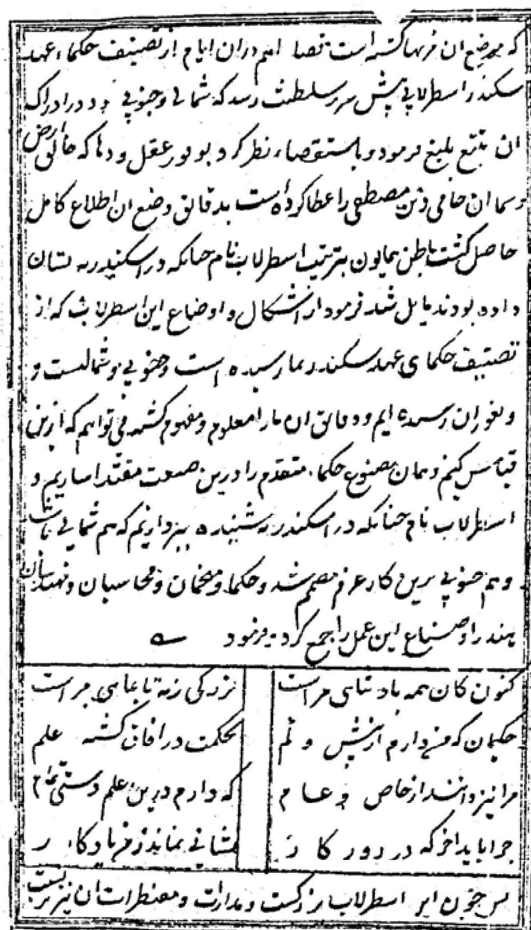 که موضع ان فرنها گشته است قضا اهم دران ایام از تصنیف حکماء عهد
سکندر اسطرلابی پیش سریر سلطنت رسد که شمالی و جنوبی بود در ادراک
ان تتبع بلیغ فرمود و باستقصاء نظر کرد بوفور عقل و دها که خالق ارض
و سما ان حامی دین مصطفی را عطا کرده است بدقائق وضع ان اطلاع کامل
حاصل گشت باطن همایون بترتیب اسطرلاب نام چنانکه در اسکندریه نشان
داده بودند مایل شد فرمود از اشکال و اوضاع این اسطرلاب که از
تصنیف حکمای عهد سکندر بما رسیده است و جنوبی و شمالیست و
و بغور ان رسیده ایم و دقائق ان ما را معلوم و مفهوم گشته می توانم که ازین
قیاس کنیم و همان مصنوع حکماء متقدم را درین صنعت مقتدا سازیم و
اسطرلاب نام چنانکه در اسکندریه شنیده بپردازیم که هم شمالی باشد
و هم جنوبی برین کار عزم مصمم شد و حکما و منجمان و محاسبان و مهندسان
هند را و صناع این عمل را جمع کرد فرمود
کنون کان همه پادشاهی مراست
بزرگی ز مه تا بماهی مراست
حکیمان که می دارم از پیش و کم
بحکمت در افاق گشته علم
مرا نیز دانند از خاص و عام
که دارم درین علم دستی تمام
چرا باید اخر که در دور کار
نشانی نماند ز فر یادگار
پس چون این اسطرلاب بزرگست و مدارات و مقنطرات ان نیز